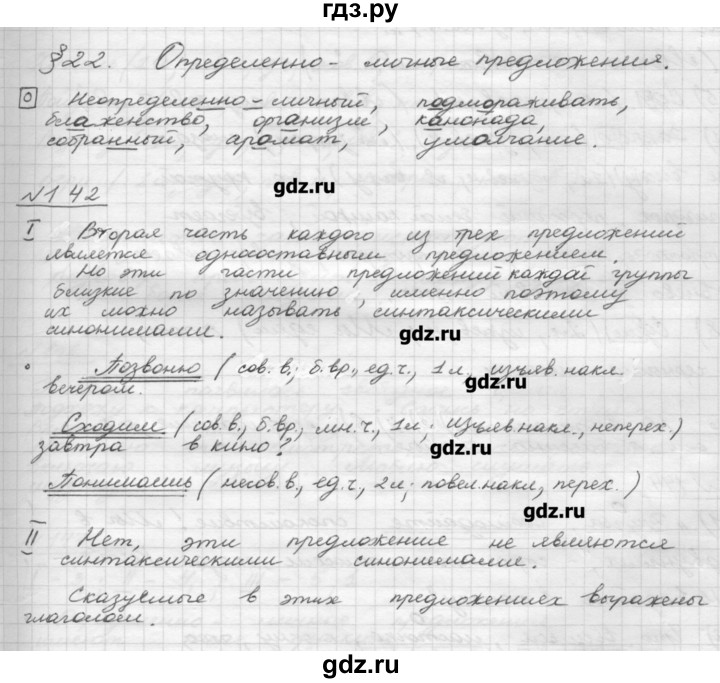 гдз.ру
§22. Определенно-личные предложения.
О Неопределенно-личный, подмораживать,
блаженство, организм, канонада,
собранный, аромат, умолчание.
gdz.ru
№142
I Вторая часть каждого из трех предложений
является односоставным предложением.
Но эти части предложений каждой группы
близкие по значению, именно поэтому
их можно называть синтаксическими
синонимами.
gdz.ru
Позвоню (сов.в., б.вр., ед.ч., 1л., изъяв.накл.
gdz.ru
вечером.
Сходим (сов.в., б.вр., мн.ч., 1л., изъяв.накл., неперех.)
завтра в кино?
gdz.ru
Понимаешь (несов.в, ед.ч, 2л; повел.накл, перех.)
gdz.ru
II Нет, эти предложение не являются
синтаксическими синонимами.
Сказуемые в этих предложениях выражены
глаголом.
gdz.ru